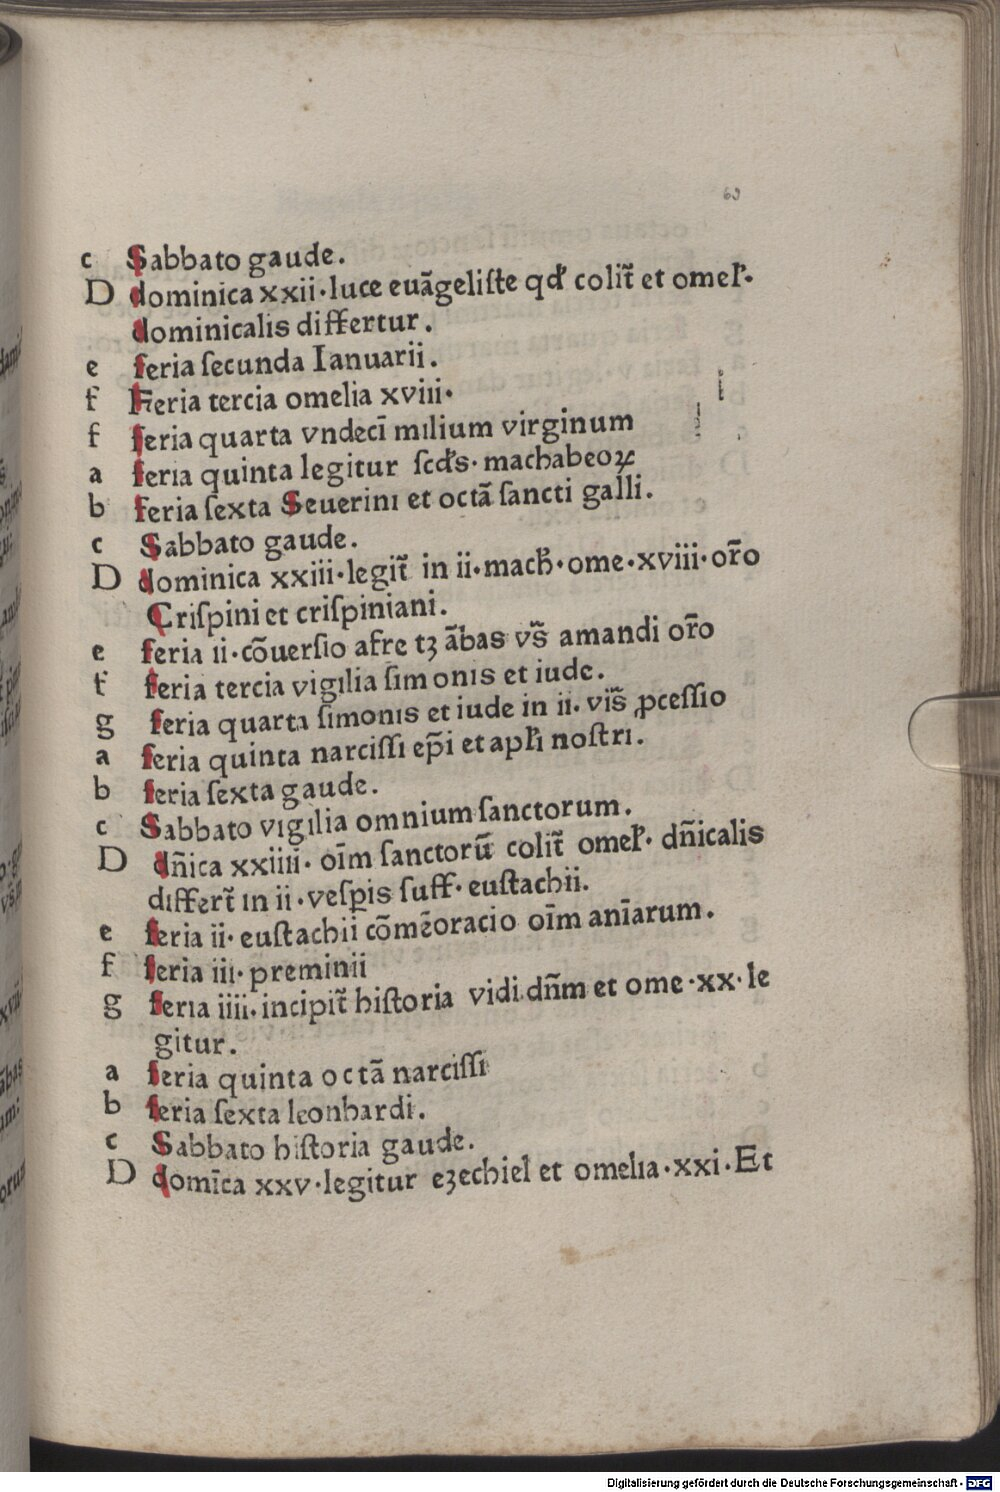 69
c Sabbato gaude.
D dominica xxii·luce euãgeliſte qđ colit̃ et omel̃·
dominicalis differtur.
e feria ſecunda Ianuarii.
f Feria tercia omelia xviii·
f feria quarta vndecĩ milium virginum
a feria quinta legitur ſcd̃s·machabeoꝝ
b feria ſexta Seuerini et octã ſancti galli.
c Sabbato gaude.
D dominica xxiii·legit̃ in ii·mach̃·ome·xviii·or̃o
Criſpini et criſpiniani.
e feria ii·cõuerſio afre tʒ ãbas vs̃ amandi or̃o
f feria tercia vigilia ſimonis et iude.
g feria quarta ſimonis et iude in ii. vis̃ ꝓceſſio
a feria quinta narciſſi ep̃i et apl̃i noſtri.
b feria ſexta gaude.
c Sabbato vigilia omnium ſanctorum.
D dñica xxiiii·oĩm ſanctorũ colit̃ omel̃·dñicalis
differt̃ in ii·veſꝑis ſuff·euſtachii.
e feria ii·euſtachii cõmẽoracio oĩm anĩarum.
f feria iii·preminii
g feria iiii·incipit̃ hiſtoria vidi dñm et ome·xx·le
gitur.
a feria quinta octã narciſſi
b feria ſexta leonhardi.
c Sabbato hiſtoria gaude.
D domĩca xxv·legitur eʒechiel et omelia·xxi·Et
Digitalisierung gefördert durch die Deutsche Forschungsgemeinschaft - DFG